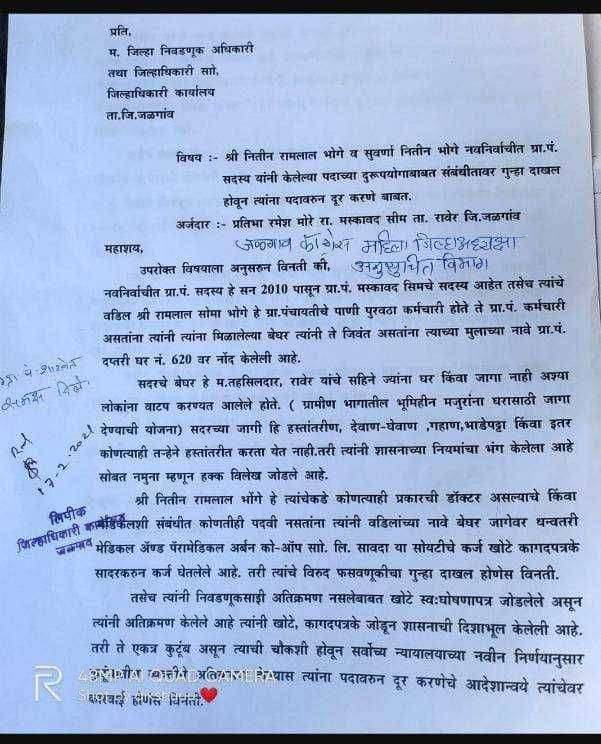 प्रति,
म. जिल्हा निवडणूक अधिकारी
तथा जिल्हाधिकारी साो,
जिल्हाधिकारी कार्यालय
ता.जि.जळगांव
विषय :- श्री नितीन रामलाल भोगे व सुवर्णा नितीन भोगे नवनिर्वाचीत ग्रा.पं.
सदस्य यांनी केलेल्या पदाच्या दुरूपयोगाबाबत संबंधीतावर गुन्हा दाखल
होवून त्यांना पदावरुन दूर करणे बाबत.
अर्जदार :- प्रतिभा रमेश मोरे रा. मस्कावद सीम ता. रावेर जि.जळगांव
जळगाव काँग्रेस महिला जिल्हाअध्यक्षा
महाशय,
अनुसुचित विभाग
उपरोक्त विषयाला अनुसरुन विनती की,
नवनिर्वाचीत ग्रा.पं. सदस्य हे सन 2010 पासून ग्रा.पं. मस्कावद सिमचे सदस्य आहेत तसेच त्यांचे
वडिल श्री रामलाल सोमा भोगे हे ग्रा.पंचायतीचे पाणी पुरवठा कर्मचारी होते ते ग्रा.पं. कर्मचारी
असतांना त्यांनी त्यांना मिळालेल्या बेघर त्यांनी ते जिवंत असतांना त्याच्या मुलाच्या नावे ग्रा.पं.
दप्तरी घर नं. 620 वर नोंद केलेली आहे.
सदरचे बेघर हे म.तहसिलदार, रावेर यांचे सहिने ज्यांना घर किंवा जागा नाही अश्या
लोकांना वाटप करण्यत आलेले होते. ( ग्रामीण भागातील भूमिहीन मजुरांना घरासाठी जागा
देण्याची योजना) सदरच्या जागी हि हस्तांतरीण, देवाण-घेवाण ,गहाण,भाडेपट्टा किंवा इतर
कोणत्याही तऱ्हेने हस्तांतरीत करता येत नाही.तरी त्यांनी शासनाच्या नियमांचा भंग केलेला आहे
सोबत नमुना म्हणून हक्क विलेख जोडले आहे.
17-2-2021
लिपीक
जिल्हाधिकारी कार्यालय
जळगाव
श्री नितीन रामलाल भोंगे हे त्यांचेकडे कोणत्याही प्रकारची डॉक्टर असल्याचे किंवा
मेडिकलशी संबंधीत कोणतीही पदवी नसतांना त्यांनी वडिलांच्या नावे बेघर जागेवर धन्वतरी
मेडिकल ॲण्ड पॅरामेडिकल अर्बन को-ऑप साो. लि. सावदा या सोयटीचे कर्ज खोटे कागदपत्रके
सादरकरुन कर्ज घेतलेले आहे. तरी त्यांचे विरुद फसवणूकीचा गुन्हा दाखल होणेस विनती.
तसेच त्यांनी निवडणूकसाझी अतिक्रमण नसलेबाबत खोटे स्व:घोषणापत्र जोडलेले असून
त्यांनी अतिक्रमण केलेले आहे त्यांनी खोटे, कागदपत्रके जोडून शासनाची दिशाभूल केलेली आहे.
तरी ते एकत्र कुटूंब असून त्याची चौकशी होवून सर्वोच्य न्यायालयाच्या नवीन निर्णयानुसार
त्यांना पदावरुन दूर करणेचे आदेशान्वये त्यांचेवर
कारवाई होणेस विनती.
48MP AI QUAD CAMERA